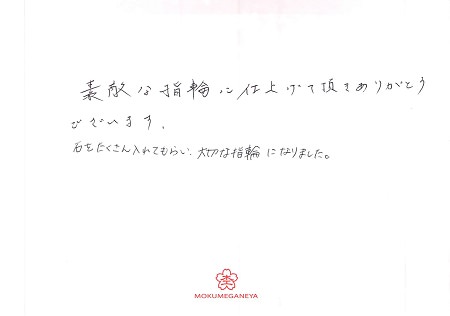 素敵な指輪に仕上げて頂きありがとう
ございます。
石をたくさん入れてもらい、大切な指輪になりました。
MOKUMEGANEYA